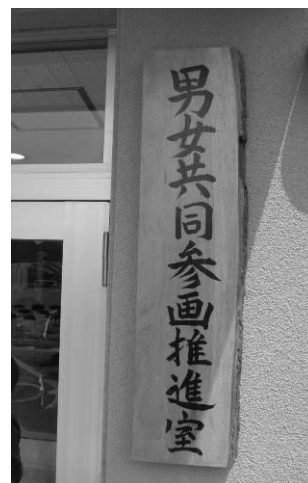 男女共同参画推進室